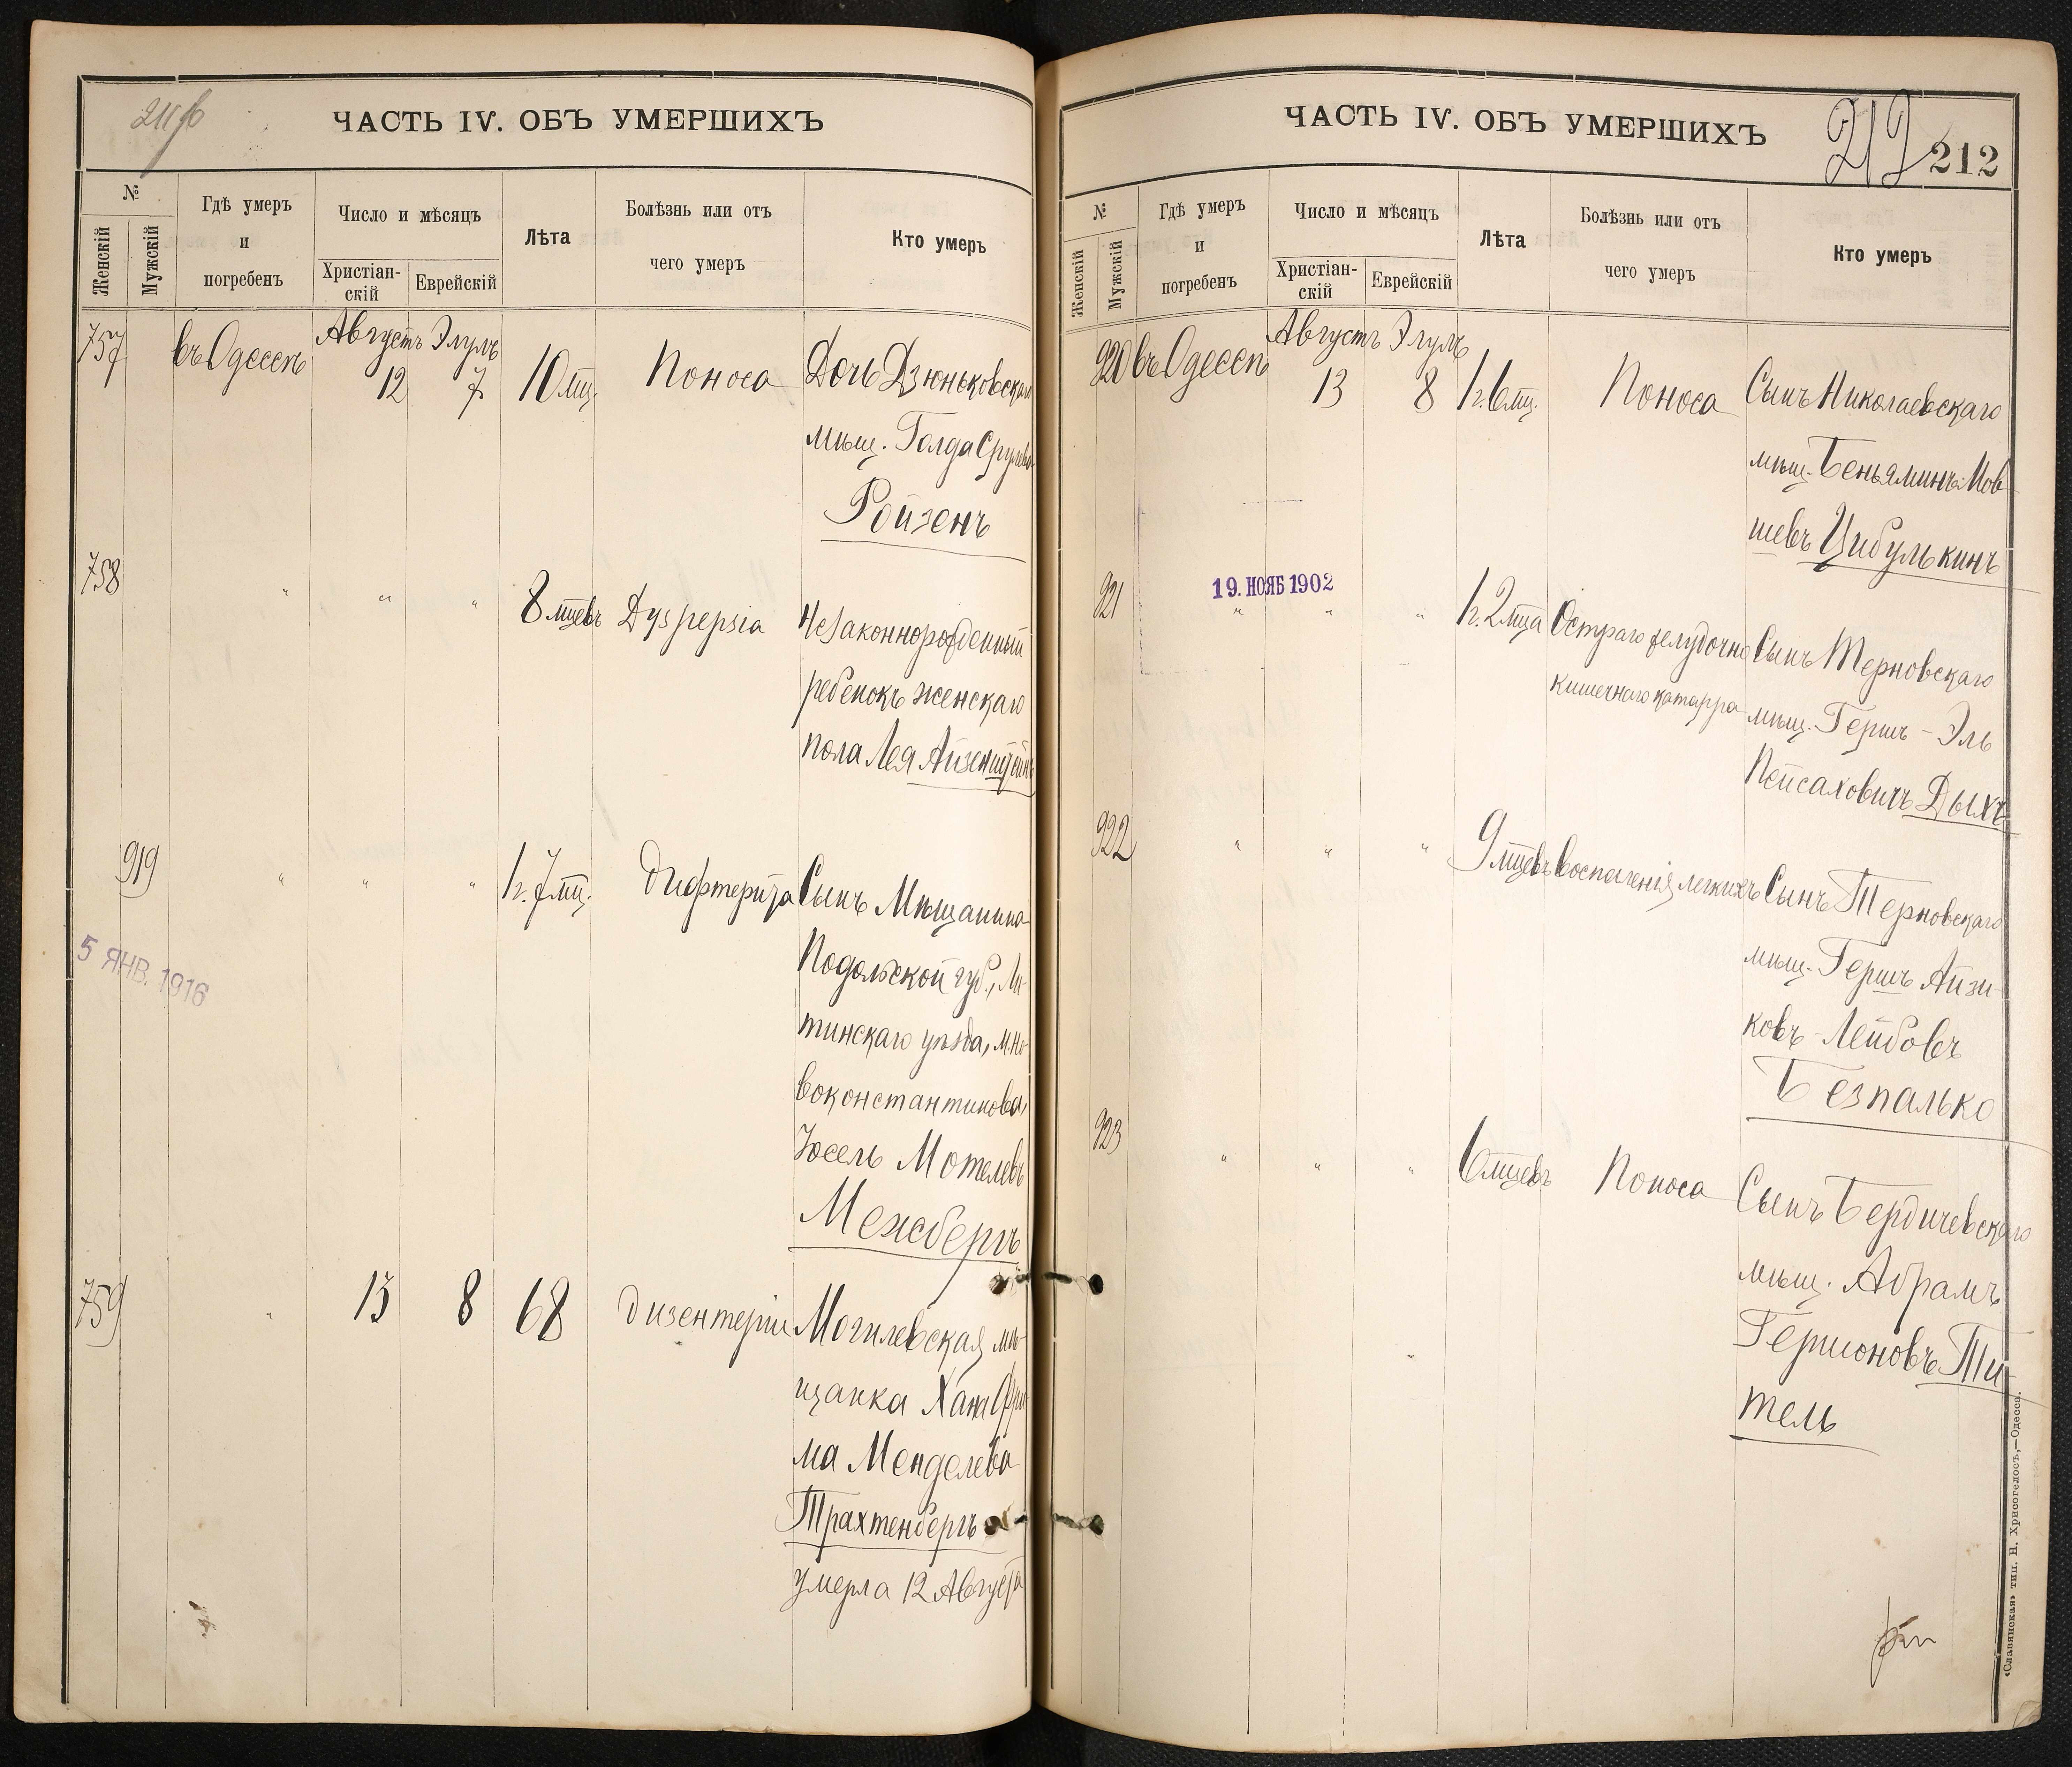 211 об
ЧАСТЬ IV. ОБЪ УМЕРШИХЪ
№
Женскій
Мужскій
Гдѣ умеръ
и
погребенъ
Число и мѣсяцъ
Христіан-
скій
Еврейскій
Лѣта
Болѣзнь или отъ
чего умеръ
Кто умеръ
757 въ Одессѣ Августъ 12 Элулъ 7 10 мц. Поноса Дочь Дзюньковскаго
мѣщ. Голда Срулева
Ройзенъ
758 " " " 8 мцевъ Dyspepsia Незаконнорожденный
ребенокъ женскаго
пола Лея Айзенштейнъ
919 " " " 1 г. 7 мц. Дифтерита Сынъ Мѣщанина
Подольской губ., Ли-
тинскаго уѣзда, м. Но-
воконстантинова,
Іосель Мотелевъ
Межбергъ
5 ЯНВ. 1916
759 " 13 8 68 Дизентеріи Могилевская мѣ-
щанка Хана Фри-
ма Менделева
Трахтенбергъ
умерла 12 Августа
ЧАСТЬ IV. ОБЪ УМЕРШИХЪ
212
212
№
Женскій
Мужскій
Гдѣ умеръ
и
погребенъ
Число и мѣсяцъ
Христіан-
скій
Еврейскій
Лѣта
Болѣзнь или отъ
чего умеръ
Кто умеръ
920 въ Одессѣ Августъ 13 Элулъ 8 1 г. 6 мц. Поноса Сынъ Николаевскаго
мѣщ. Беньяминъ Мов-
шевъ Цибулькинъ
19. НОЯБ 1902
921 " " " 1 г. 2 мца Остраго желудочно Сынъ Терновскаго
кишечнаго катарра мѣщ. Гершъ-Эль
Пейсаховичъ Дыхъ
922 " " " 9 мцевъ Воспаленія легкихъ Сынъ Терновскаго
мѣщ. Гершъ Айзи-
ковъ-Лейбовъ
Безпалько
923 " " " 6 мцевъ Поноса Сынъ Бердичевскаго
мѣщ. Абрамъ
Гершоновъ Ти
тель
«Славянская» тип. Н. Хрисогелосъ,—Одесса.